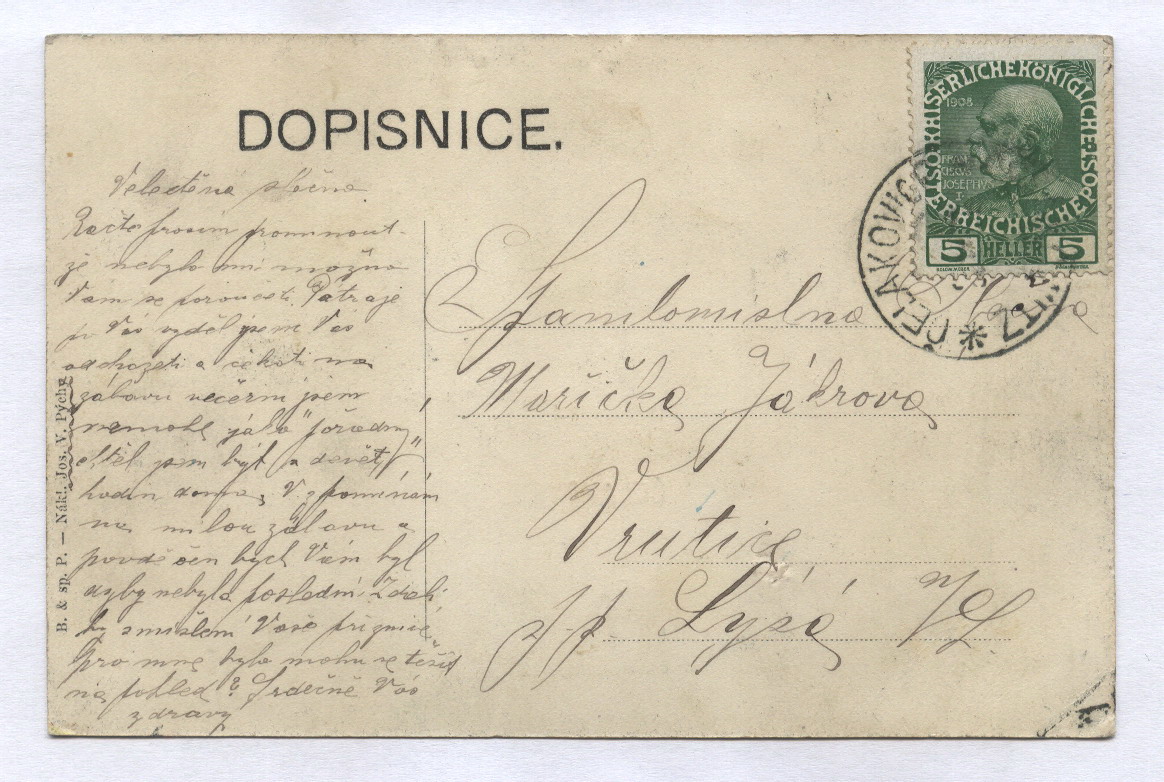 DOPISNICE.
Veleděná slečno
Račte prosím prominout
že nebylo mi možno
Vám se poroučeti. Pátraje
po Vás vyděl jsem Vás
odcházeti a čekati na
zábavu večerní jsem
nemohl jako pořádný
chtěl jsem být v devět
hodin doma, Vzpomínám
na milou zábavu a
povděčen bych Vám byl
dyby nebyla poslední. Zdali
by smíšlení Vaše příznivé
pro mne bylo mohu se těšit
na pohled? Srdečně Vás
zdravý
B. & sp. P. — Nákl. Jos. V. Pýchy
KAISERLICHE KÖNIGLICHE ÖSTERREICHISCHE POST
1908
FRAN
CISCVS
JOSEPHVS
I
5 HELLER 5
ČELAKOVICE
Marička Jákrova
Vrutice
p.p. Lysá n/L